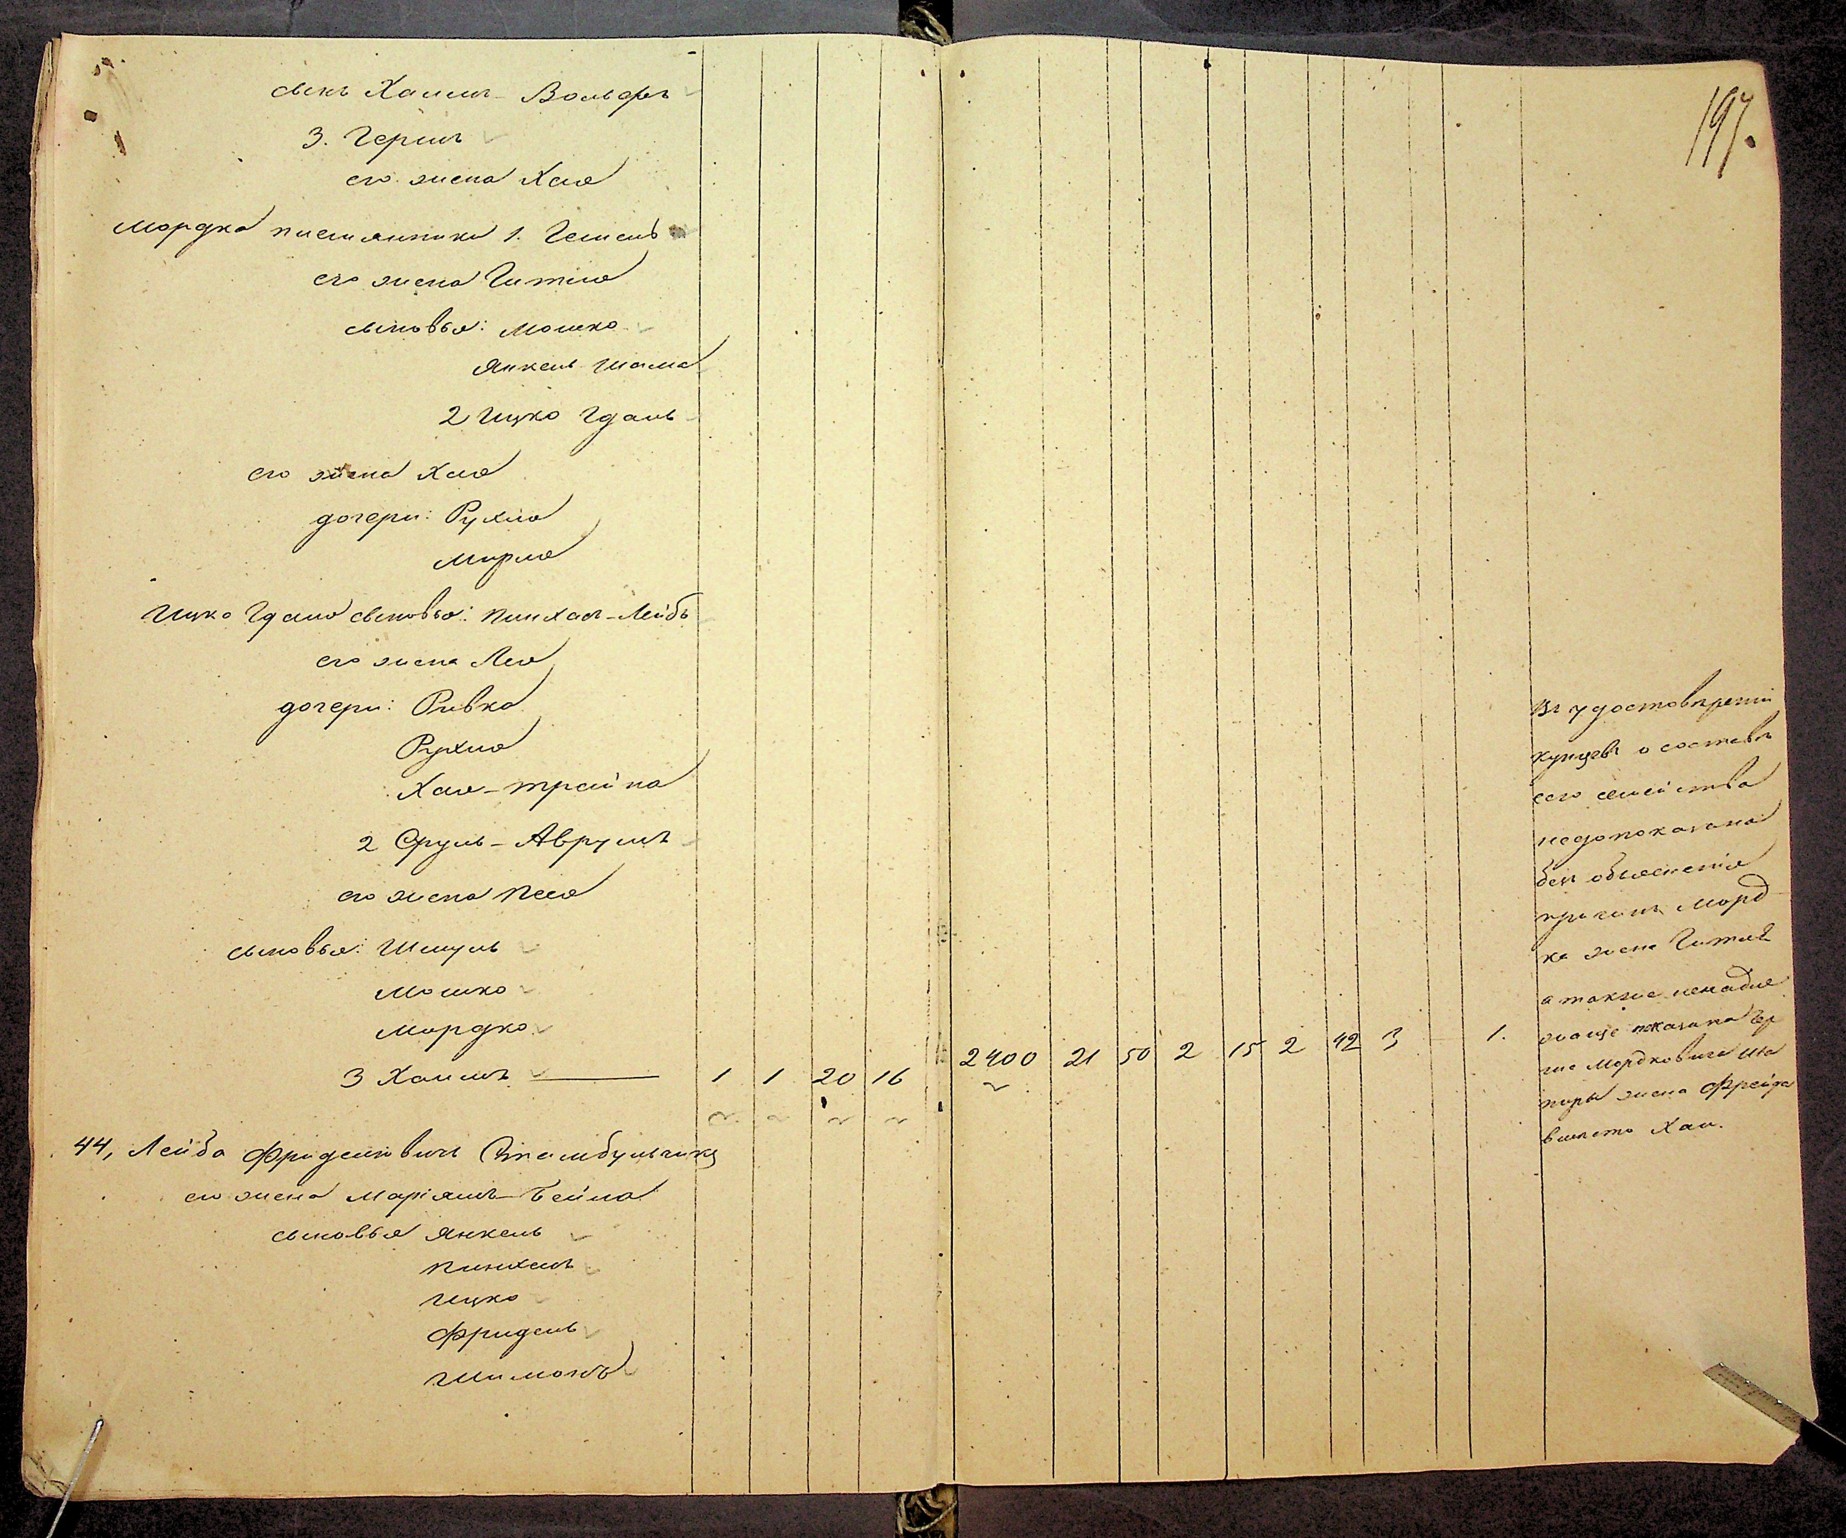 197.
сынъ Хаимъ-Вольфъ
3. Гершъ
его жена Хая
Мордка племянники 1.
его жена Гитля
сыновья: Мошко
Янкель Шама
2 Ицко Гдаль
его жена Хая
дочери: Рухля
Мирля
Ицко Гдаля сыновья: Пинхасъ-Лейбъ
его жена Лея
дочери: Ривка
Рухля
Хая-Трейна
2 Сруль-Аврумъ
его жена Песя
сыновья: Шмуль
Мошко
Мордко
3 Хаимъ — 1 1 20 16 2400 21 50 2 15 2 42 3 1.
44, Лейба Фриделевичъ Стамбульчикъ
его жена Маріямъ-Бейла
сыновья Янкель
Пинхасъ
Ицко
Фридель
Шимонъ
Въ удостовереніи
купцовъ о составѣ
его семейства
недопоказана
безъ объясненія
причинъ Морд
ка жена Гитля
а также ненадле
жаще показана Гер
ша Мордковича Ша
пиры жена Фрейда
вместо Хаи.